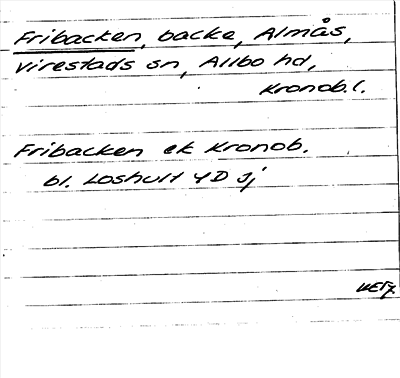 Fribacken, backe, Almås,
Virestads sn, Allbo hd,
Kronob.l.
Fribacken ek Kronob.
bl. Loshult 4D sj